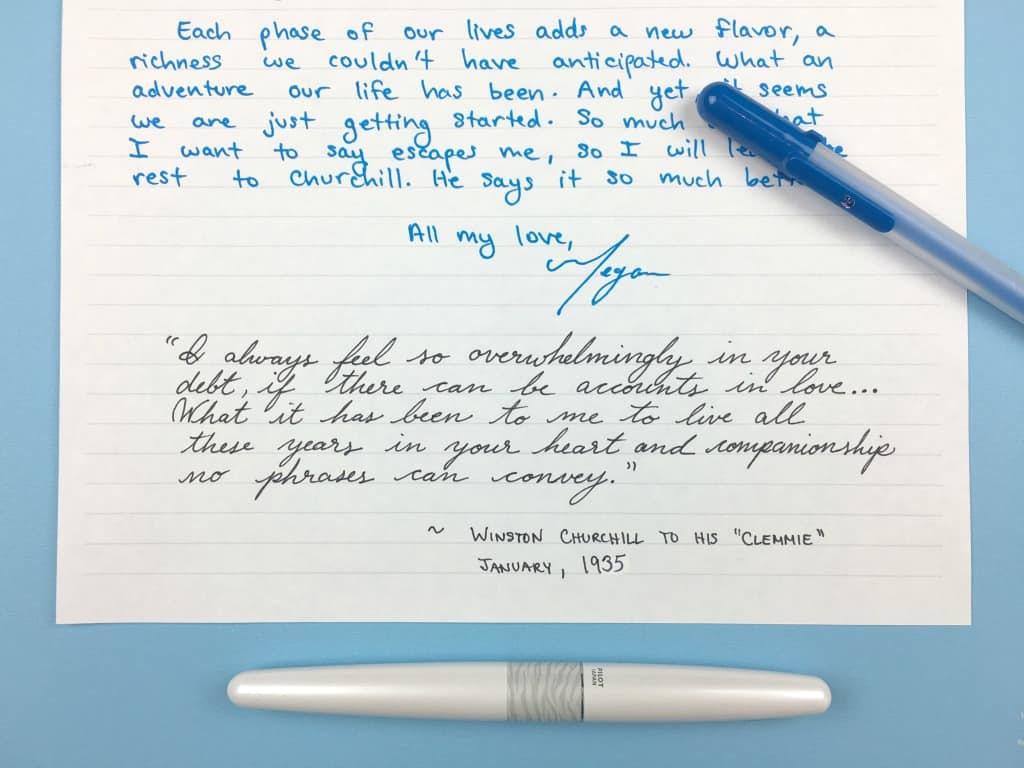 Each phase of our lives adds a new flavor, a
richness we couldn't have anticipated. What an
adventure our life has been. And yet seems
we are just getting started. So much
I want to say escapes me, so I will
rest to Churchill. He says it so much
All my love,
Megan
"I always feel so overwhelmingly in your
debt, if there can be accounts in love...
What it has been to me to live all
these years in your heart and companionship
no phrases can convey."
~ WINSTON CHURCHILL TO HIS "CLEMMIE"
JANUARY, 1935
PILOT
JAPAN